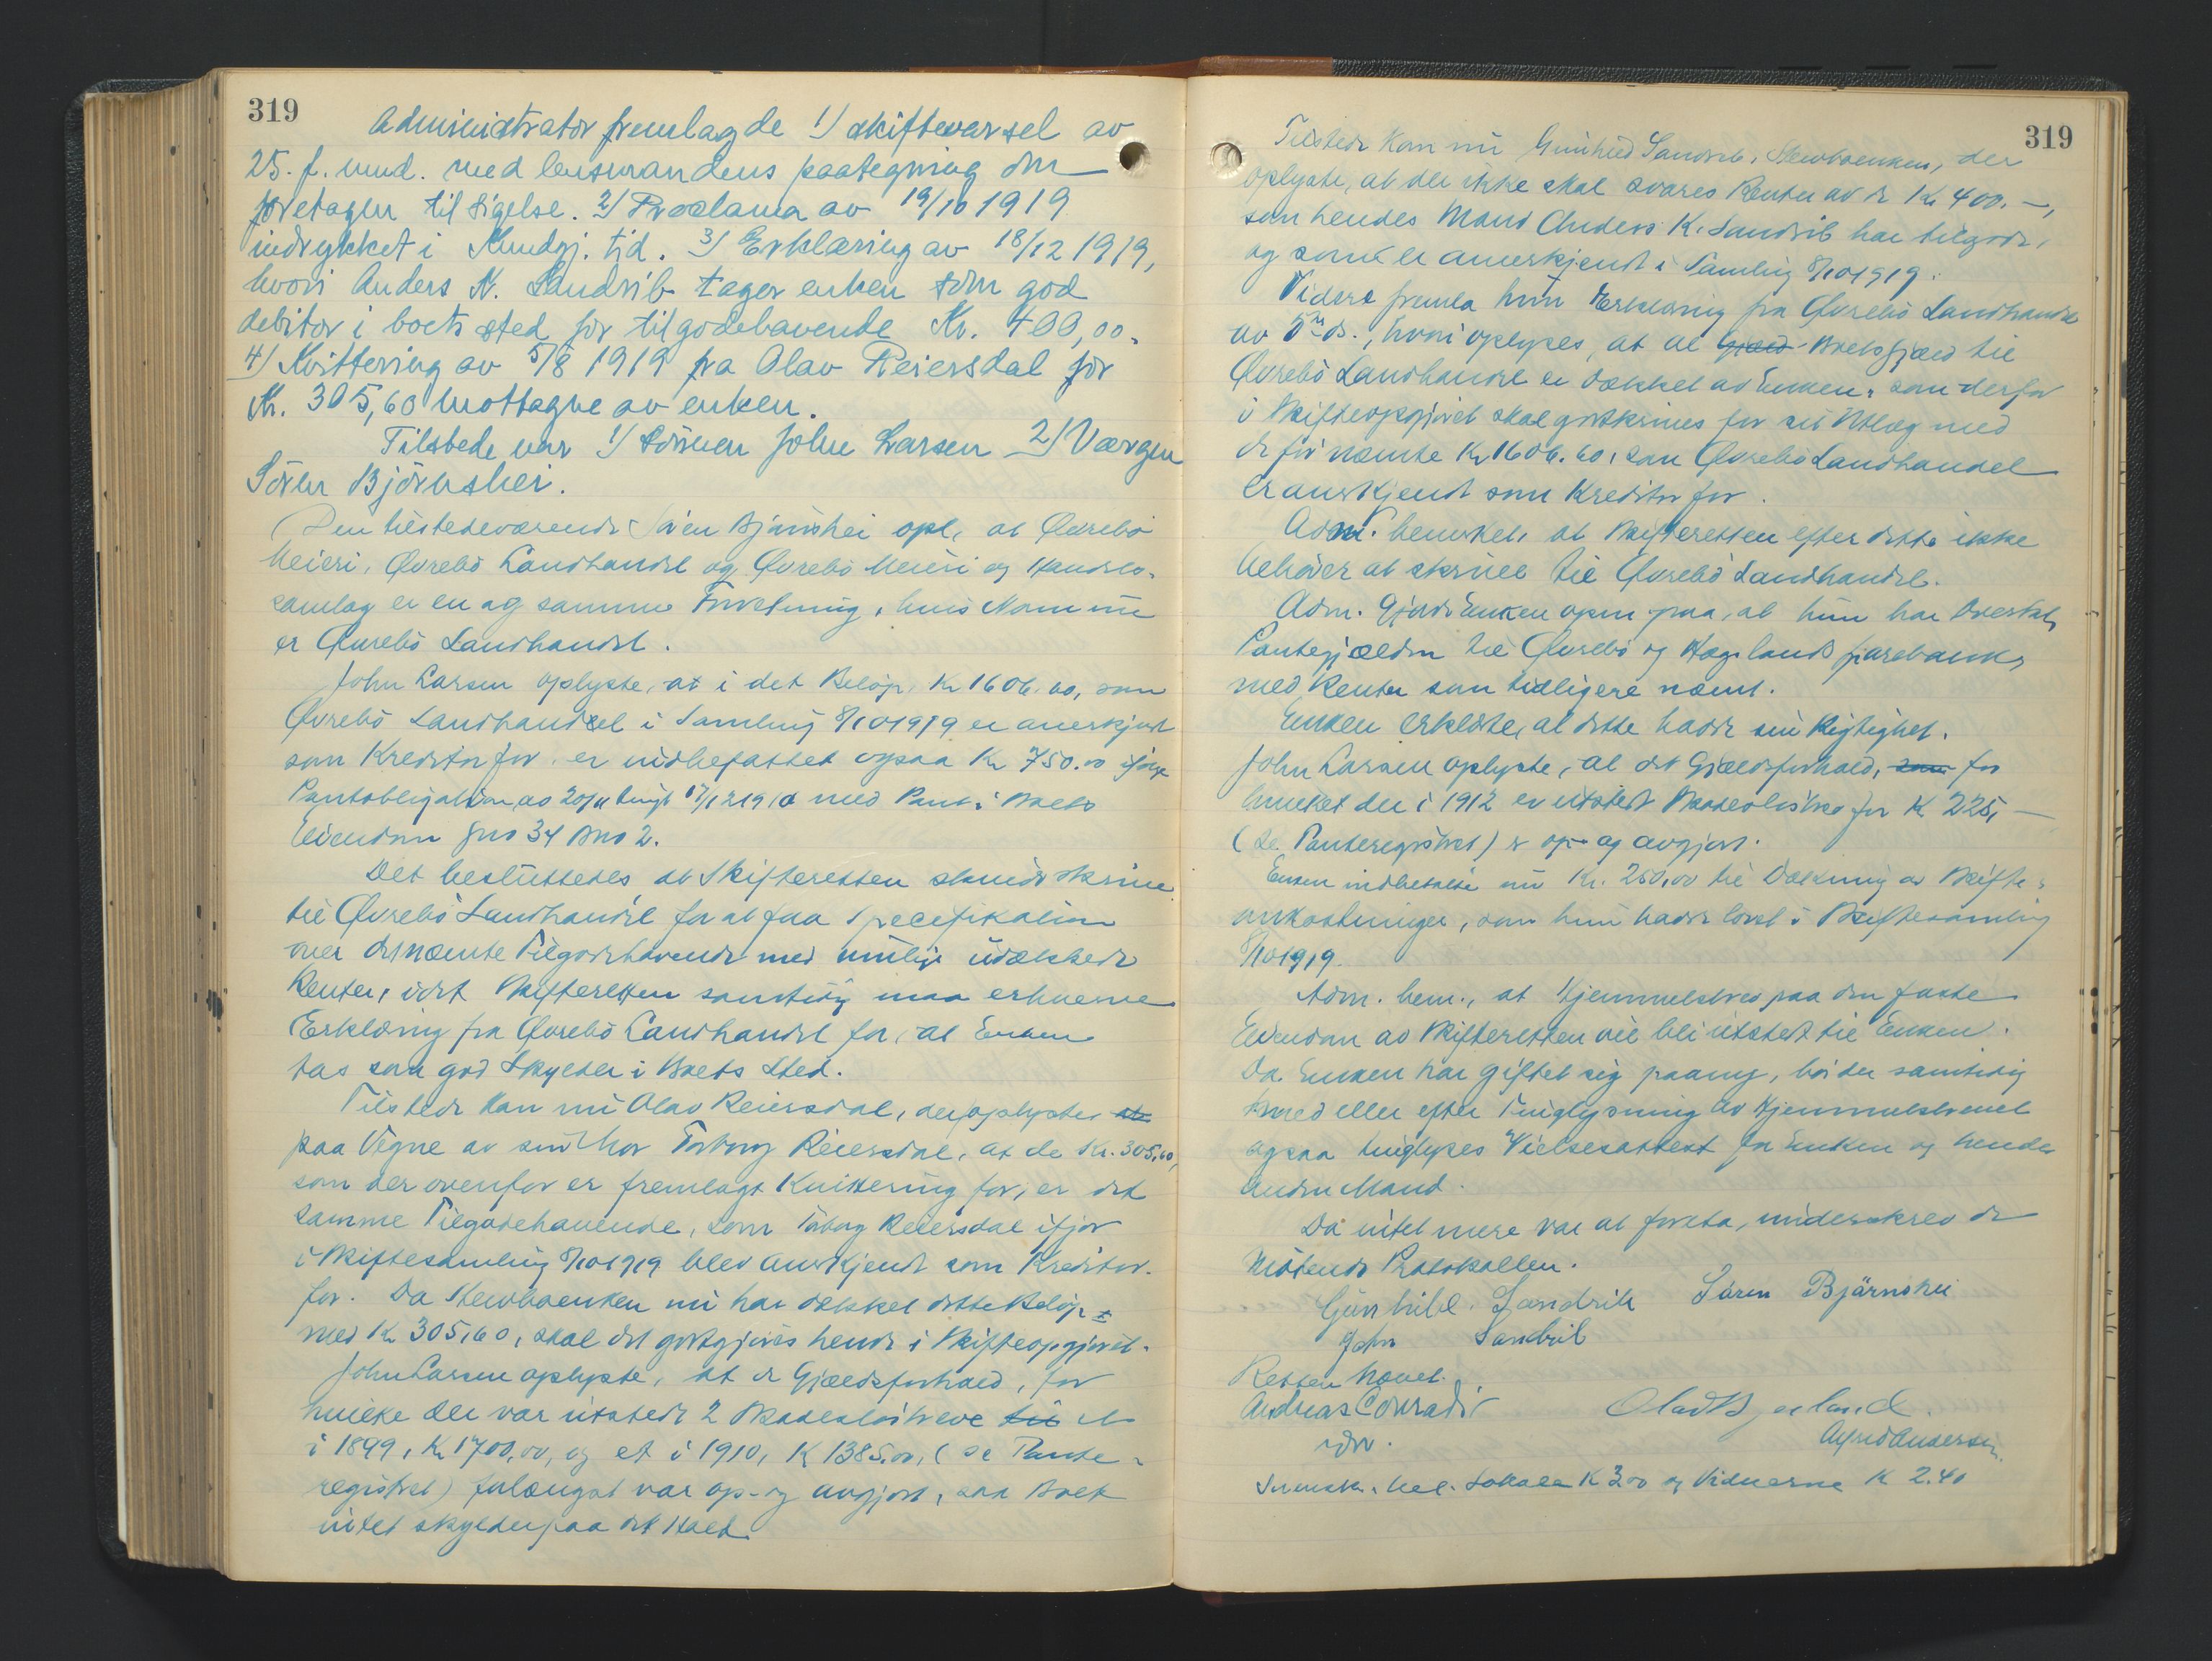 319
Administrator fremlagde 1/ skiftevarsel av
25. f. mnd. med lensmandens paategning om
foretagen tilsigelse. 2/ Proclama av 19/10 1919
indrykket i Kundgj. tid. 3/ Erklæring av 18/12 1919,
hvori Anders K. Sandrib tager enken som god
debitor i boets sted for tilgodehavende Kr. 400,00.
4/ Kvittering av 5/8 1919 fra Olav Reiersdal for
Kr. 305,60 mottagne av enken.
Tilstede var 1/ Sönnen John Larsen 2/ Værgen
Sören Björnshei.
Den tilstedeværende Sören Bjørnshei opl. at Øvrebö
Meieri, Øvrebö Landhandel og Øvrebö Meieri og Handels-
samlag er en og samme Forretning, hvis Navn nu
er Øvrebö Landhandel.
John Larsen oplyste, at i det Beløp, Kr 1606.60, som
Øvrebö Landhandel i Samling 8/10 1919 er anerkjent
som Kreditor for, er indbefattet ogsaa Kr 750.00 ifølge
Pantobligation av 20/11 tingl 17/12 1910 med Pant i Boets
Eiendom Gno 34 Bno 2.
Det besluttedes, at Skifteretten skulde skrive
til Øvrebö Landhandel for at faa Specifikation
over det nævnte Tilgodehavende med mulige udækkede
Renter, idet Skifteretten samtidig maa erhverve
Erklæring fra Øvrebö Landhandel for, at Enken
tas som god Skylder i Boets Sted.
Tilstede kom nu Olav Reiersdal, der oplyste at
paa Vegne av sin Mor Torborg Reiersdal, at de Kr. 305,60,
som der ovenfor er fremlagt Kvittering for, er det
samme Tilgodehavende, som Torborg Reiersdal ifjor
i Skiftesamling 8/10 1919 blev anerkjendt som Kreditor
for. Da Stervboenken nu har dækket dette Beløp
med Kr 305,60, skal det godtgjøres hende i Skifteopgjøret.
John Larsen oplyste, at de Gjældsforhold, for
hvilke der var utstedt 2 Skadesløsbreve til et
i 1899, Kr 1700,00, og et i 1910, Kr 1385.00, (se Pante-
registret) forlængst var op- og avgjort, saa Boet
intet skylder paa det Hold.
319
Tilstede kom nu Gunhild Sandrib, Stervboenken, der
oplyste, at der ikke skal svares Renter av de Kr 400.-,
som hendes Mand Anders K. Sandrib har tilgode,
og som er anerkjendt i Samling 8/10 1919.
Videre fremla hun Erklæring fra Øvrebö Landhandel
av 5 ds., hvori oplyses, at al Gjæld Boets gjæld til
Øvrebö Landhandel er dækket av Enken, som derfor
i Skifteopgjøret skal godskrives for sit Utlæg med
de før nævnte Kr 1606.60, som Øvrebö Landhandel
er anerkjendt som Kreditor for.
Adm. bemerket, at Skifteretten efter dette ikke
behøver at skrive til Øvrebö Landhandel.
Adm. gjorde Enken opm. paa, at hun har overtat
Pantegjælden til Øvrebö og Hægelands Sparebank
med Renter som tidligere nævnt.
Enken erklærte, at dette hadde sin Rigtighet.
John Larsen oplyste, at det Gjældsforhold, som for
hvilket der i 1912 er utstedt Skadesløsbrev for Kr 225,-
(se Panteregistret) er op- og avgjort.
Enken indbetalte nu Kr. 250,00 til Dækning av Skifte-
omkostninger, som hun hadde lovet i Skiftesamling
8/10 1919.
Adm. bem., at Hjemmelsbrev paa den faste
Eiendom av Skifteretten vil bli utstedt til Enken.
Da Enken har giftet sig paany, bør der samtidig
med eller efter Tinglysning av Hjemmelsbrevet
ogsaa tinglyses Vielsesattest for Enken og hendes
anden Mand.
Da intet mere var at foreta, underskrev de
Mötende Protokollen.
Gunhild. Sandrib Sören Bjärnshei
John Sandrib
Retten hævet.
Andreas Conradi
Alfred Andersen
Lokale K 3.00 og Vidnerne K 2.40